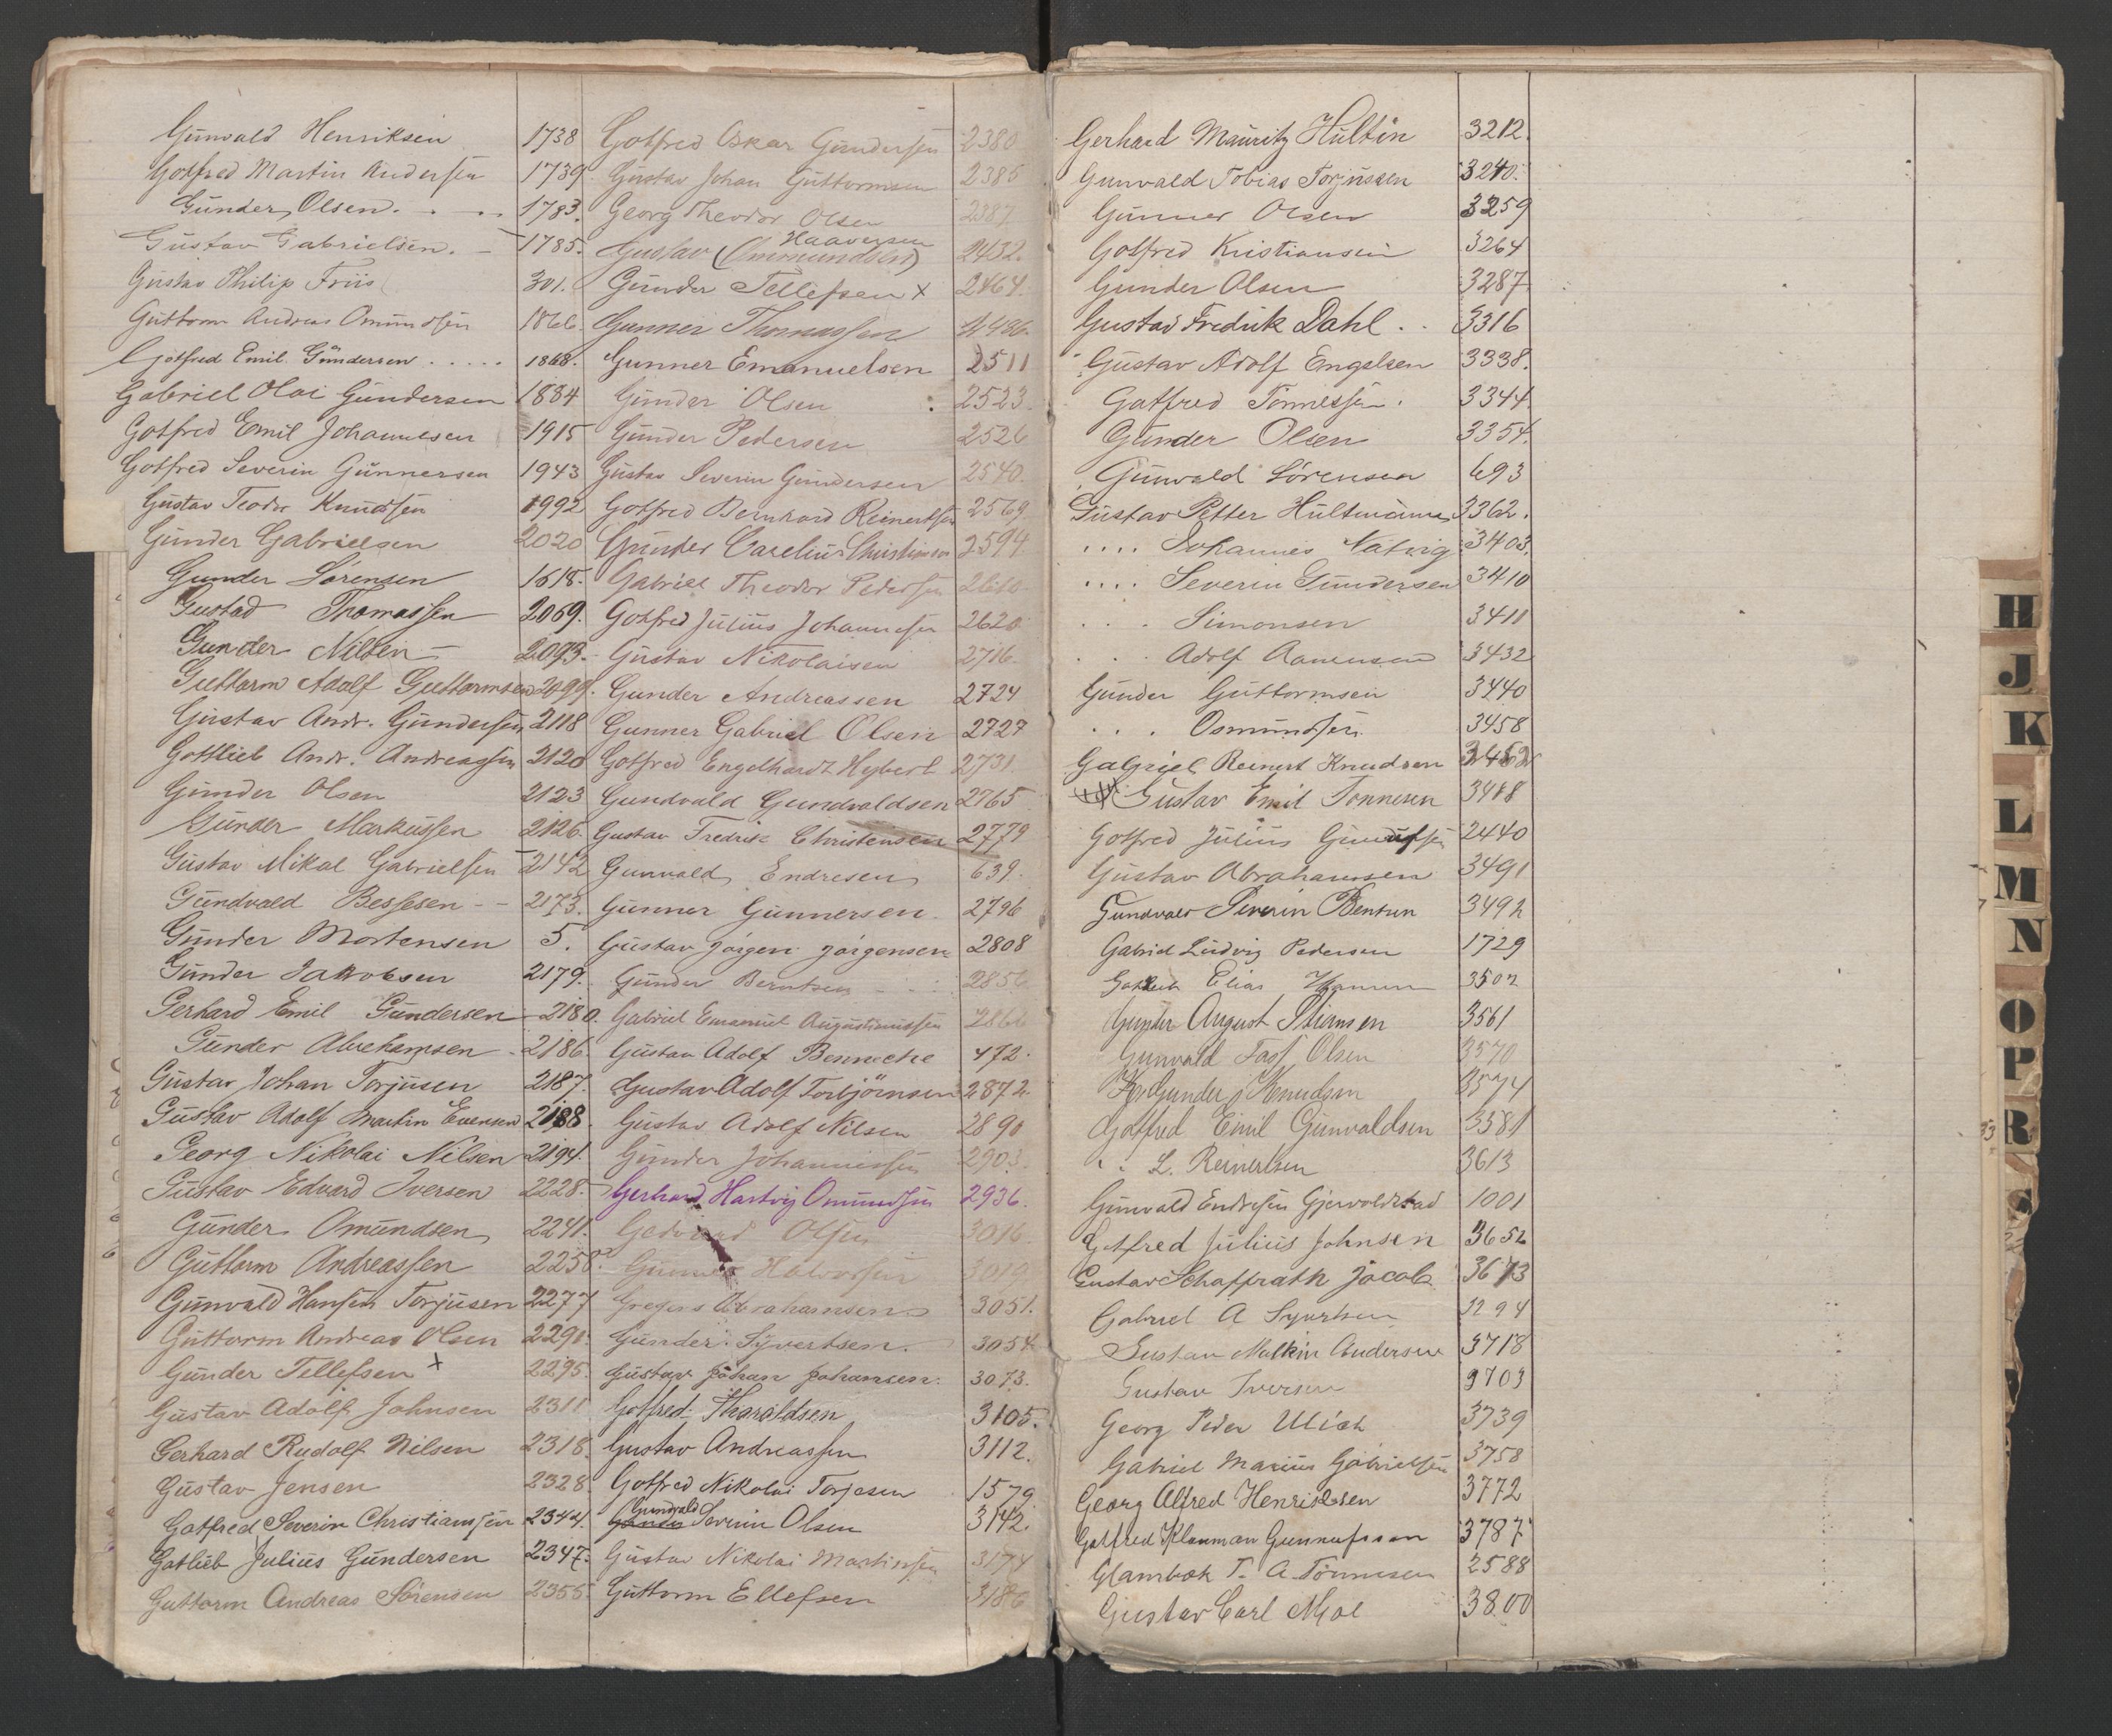 Gunvald Henriksen 1738
Gotfred Martin Andersen 1739
Gunder Olsen. 1783.
Gustav Gabrielsen. 1785.
Gustav Philip Friis 301.
Guttorm Andreas Omundsen 1866.
Gotfred Emil Gundersen ..... 1868.
Gabriel Olai Gundersen 1884
Gotfred Emil Johannesen 1915
Gotfred Severin Gunnersen 1943
Gustav Teodor Knudsen 1992
Gunder Gabrielsen 2020
Gunder Sörensen 1618.
Gustad Thomassen 2069.
Gunder Nilsen 2093.
Guttorm Adolf Guttormsen 2099.
Gustav Andr. Gundersen 2118
Gottlieb Andr. Andreassen 2120
Gunder Olsen 2123
Gunder Markussen 2126.
Gustav Mikal Gabrielsen 2142
Gundvald Bessesen 2173.
Gunder Mortensen 5.
Gunder Jakobsen 2179.
Gerhard Emil Gundersen 2180.
Gunder Abrahamsen 2186.
Gustav Johan Torjusen 2187.
Gustav Adolf Martin Evensen 2188.
Georg Nikolai Nilsen 2194.
Gustav Edvard Iversen 2228.
Gunder Omundsen 2241.
Guttorm Andreassen 2258.
Gunvald Hansen Torjusen 2277
Guttorm Andreas Olsen 2290.
Gunder Tellefsen x 2295.
Gustav Adolf Johnsen 2311
Gerhard Rudolf Nilsen 2318.
Gustav Jensen 2328.
Gotfred Severin Christianssen 2344.
Gotlieb Julius Gundersen 2347.
Guttorm Andreas Sörensen 2355.
Gotfred Oskar Gundersen 2380
Gustav Johan Guttormsen 2385
Georg Theodor Olsen 2387
Haaversen
Gustav (Ommundsen) 2432.
Gunder Tellefsen x 2464.
Gunner Thomassen 2486.
Gunner Emanuelsen 2511
Gunder Olsen 2523.
Gunder Pedersen 2526
Gustav Severin Gundersen 2540.
Gotfred Bernhard Reinertsen 2569
Gunder Carelius Christiansen 2594.
Gabriel Theodor Pedersen 2610
Gotfred Julius Johannesen 2620
Gustav Nikolaisen 2716.
Gunder Andreassen 2724
Gunner Gabriel Olsen 2727
Gotfred Engelhardt Hybert 2731.
Gundvald Gundvaldsen 2765
Gustav Fredrik Christensen 2779
Gunvald Endresen 639.
Gunner Gunnersen. 2796
Gustav Jörgen Jörgensen 2808
Gunder Berntsen 2856
Gabriel Emanuel Augustinussen 2866
Gustav Adolf Benneche 472.
Gustav Adolf Torbjörnsen 2872.
Gustav Adolf Nilsen 2890
Gunder Johannessen 2903.
Gerhard Hartvig Omundsen 2936.
Olsen 3016
Gunner Halvorsen 3019
Gregers Abrahamsen 3051.
Gunder Syvertsen. 3054
Gustav Johan Johansen. 3073.
Gotfred Tharaldsen 3105.
Gustav Andreassen 3112.
Gotfred Nikolai Torjesen 1579
Gundvald
Gunder Severin Olsen 3142.
Gustav Nikolai Martinsen 3174
Guttorm Ellefsen 3186
Gerhard Mauritz Hultin 3212.
Gunvald Tobias Torjussen 3240.
Gunner Olsen 3259
Gotfred Kristiansen 3264
Gunder Olsen 3287
Gustav Fredrik Dahl .. 3316
Gustav Adolf Engelsen 3338.
Gotfred Tönnessen. 3344.
Gunder Olsen 3354.
Gunvald Sörensen 693
Gustav Petter Hultmann 3362.
.... Johannes Natvig 3403.
.... Severin Gundersen 3410
... Simonsen 3411
... Adolf Aanensen 3432
Gunder Guttormsen 3440
... Osmundsen 3458
Gabriel Reinert Knudsen
Gustav Emil Tonnesen 3488
Gotfred Julius 2440
Gustav Abrahamsen 3491
Gundvald Severin Bentsen 3492
Gabriel Ludvig Pedersen 1729
Elias Hansen 3502
Gunder August Stiansen 3561
Gunvald Olsen 3570
Gunder Knudsen 3574
Gotfred Emil Gunvaldsen 3581
.. L. Reinertsen 3613
Gunvald Endresen Gjervoldstad 1001
Gotfred Julius Johnsen 3652
Gustav Schaffrath Jacob 3673
Gabriel A Syvertsen 1294
Gustav Andersen 3718
Gustav Iversen 3703
Georg Peder Ulich 3739
Gabriel Marius Gabrielsen 3758
Georg Alfred Henriksen 3772
Gotfred Klauman Gunnufsson 3787
Glambek T. A. Tönnesen 2588
Gustav Carl Moe 3800
H
J
K
L
M
N
O
P
R
S